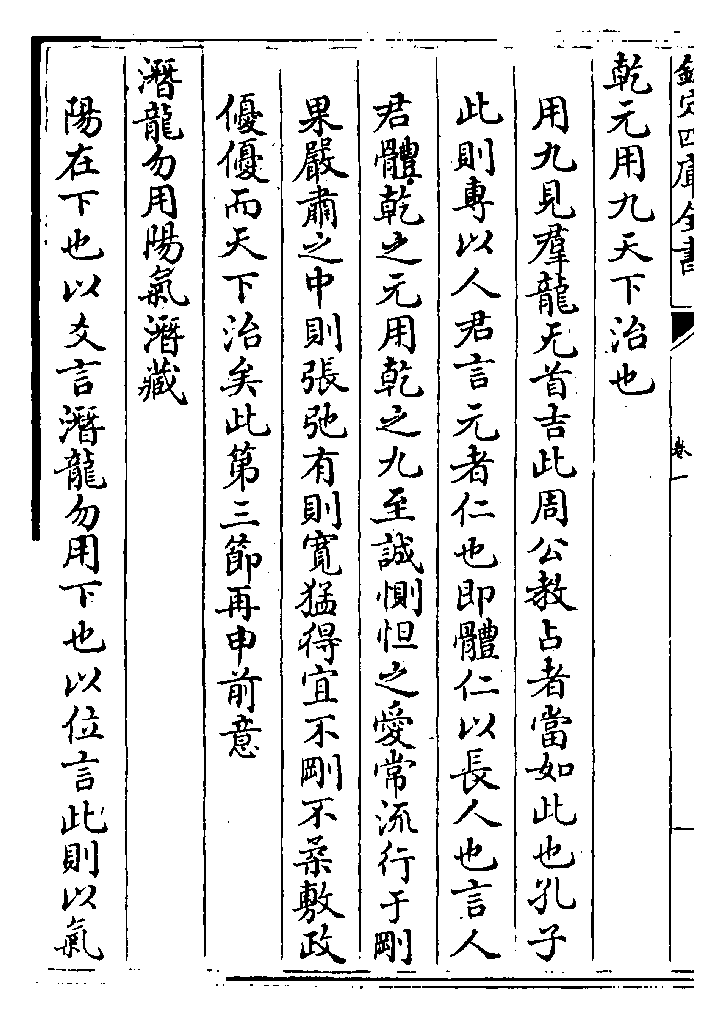 欽定四庫全書
卷一
乾元用九天下治也
用九見羣龍无首吉此周公教占者當如此也孔子
此則專以人君言元者仁也即體仁以長人也言人
君體乾之元用乾之九至誠惻怛之愛常流行于剛
果嚴肅之中則張弛有則寛猛得宜不剛不柔敷政
優優而天下治矣此第三節再申前意
潛龍勿用陽氣潛藏
陽在下也以爻言潛龍勿用下也以位言此則以氣